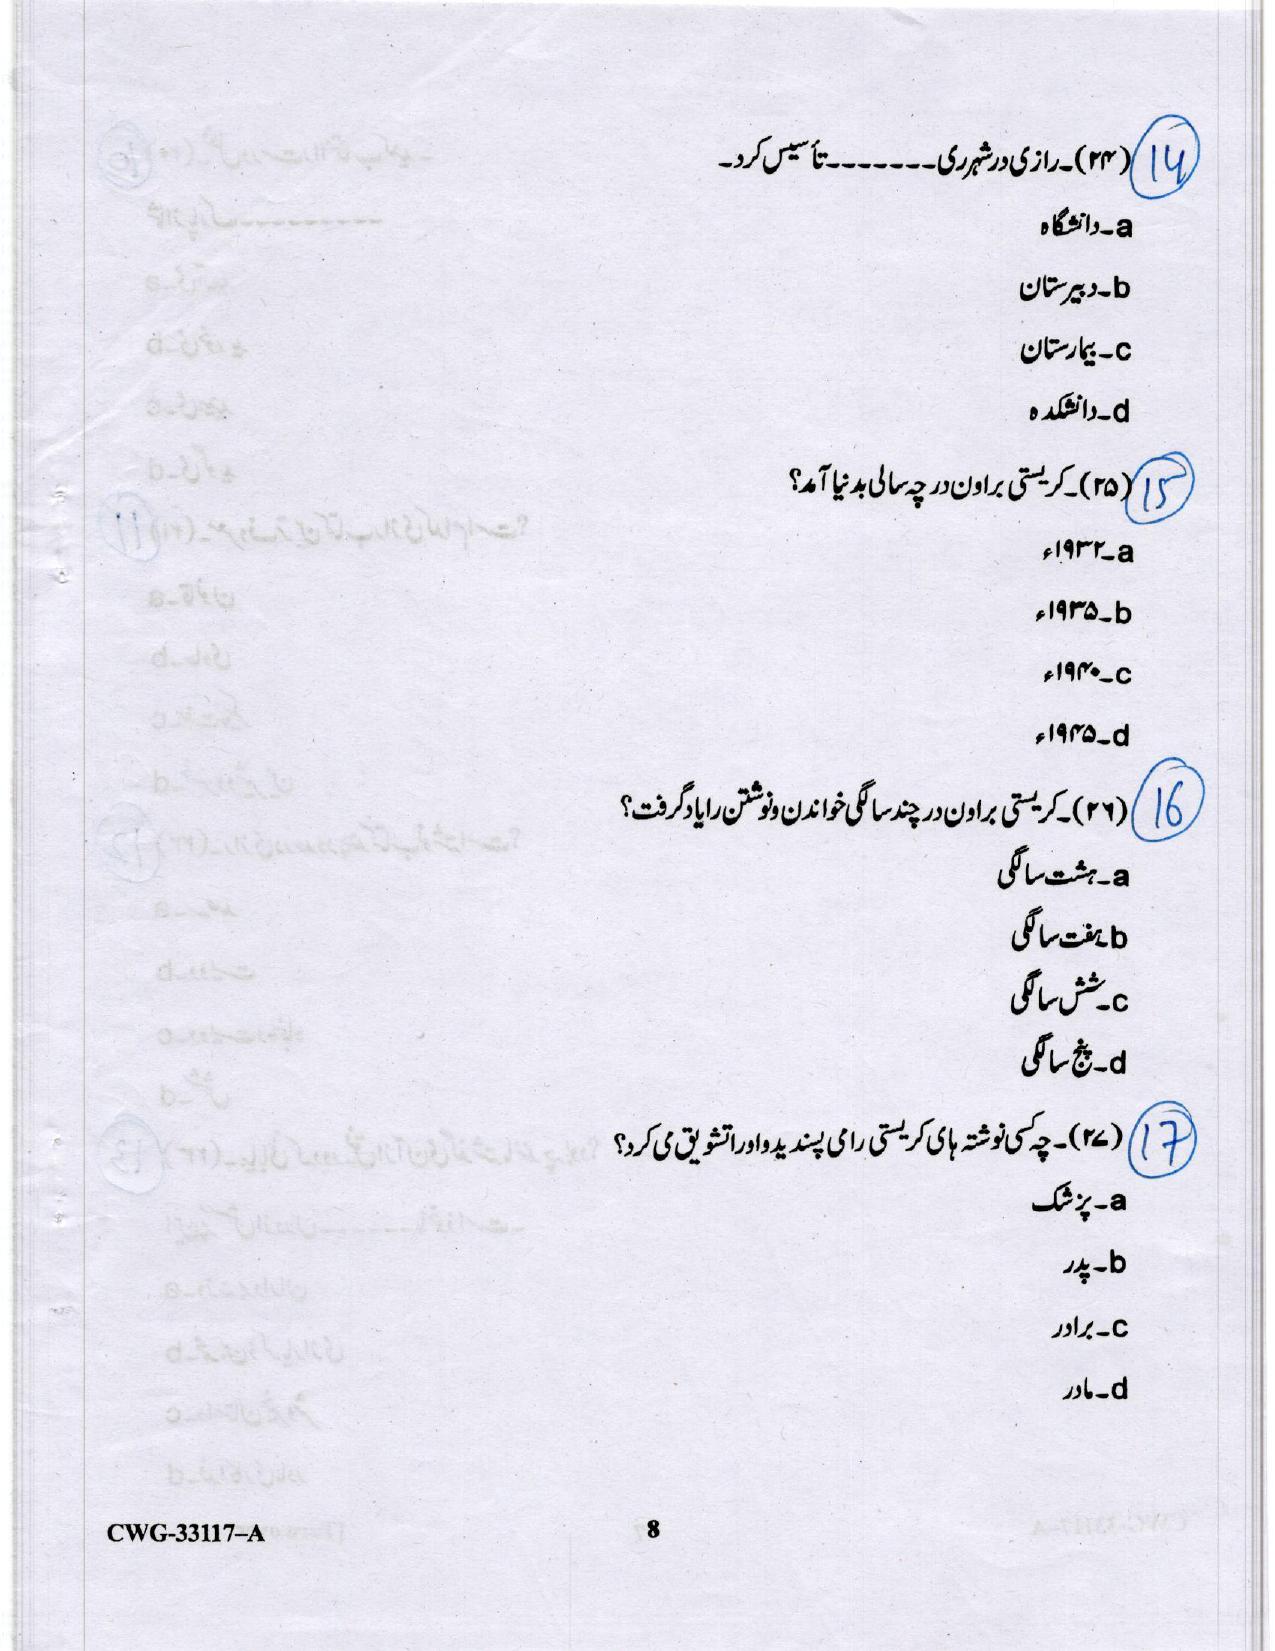 14 (۲۴)۔رازی در شہر ری۔۔۔۔۔۔۔تأسیس کرد۔
a۔دانشگاہ
b۔دبیرستان
c۔بیمارستان
d۔دانشکدہ
15 (۲۵)۔کریستی براون در چہ سالی بدنیا آمد؟
a۔۱۹۳۲ء
b۔۱۹۳۵ء
c۔۱۹۴۰ء
d۔۱۹۴۵ء
16 (۲۶)۔کریستی براون در چند سالگی خواندن و نوشتن را یاد گرفت؟
a۔ہشت سالگی
b۔ہفت سالگی
c۔شش سالگی
d۔پنج سالگی
17 (۲۷)۔چہ کسی نوشتہ ہای کریستی را می پسندید و او را تشویق می کرد؟
a۔پزشک
b۔پدر
c۔برادر
d۔مادر
CWG-33117–A 8